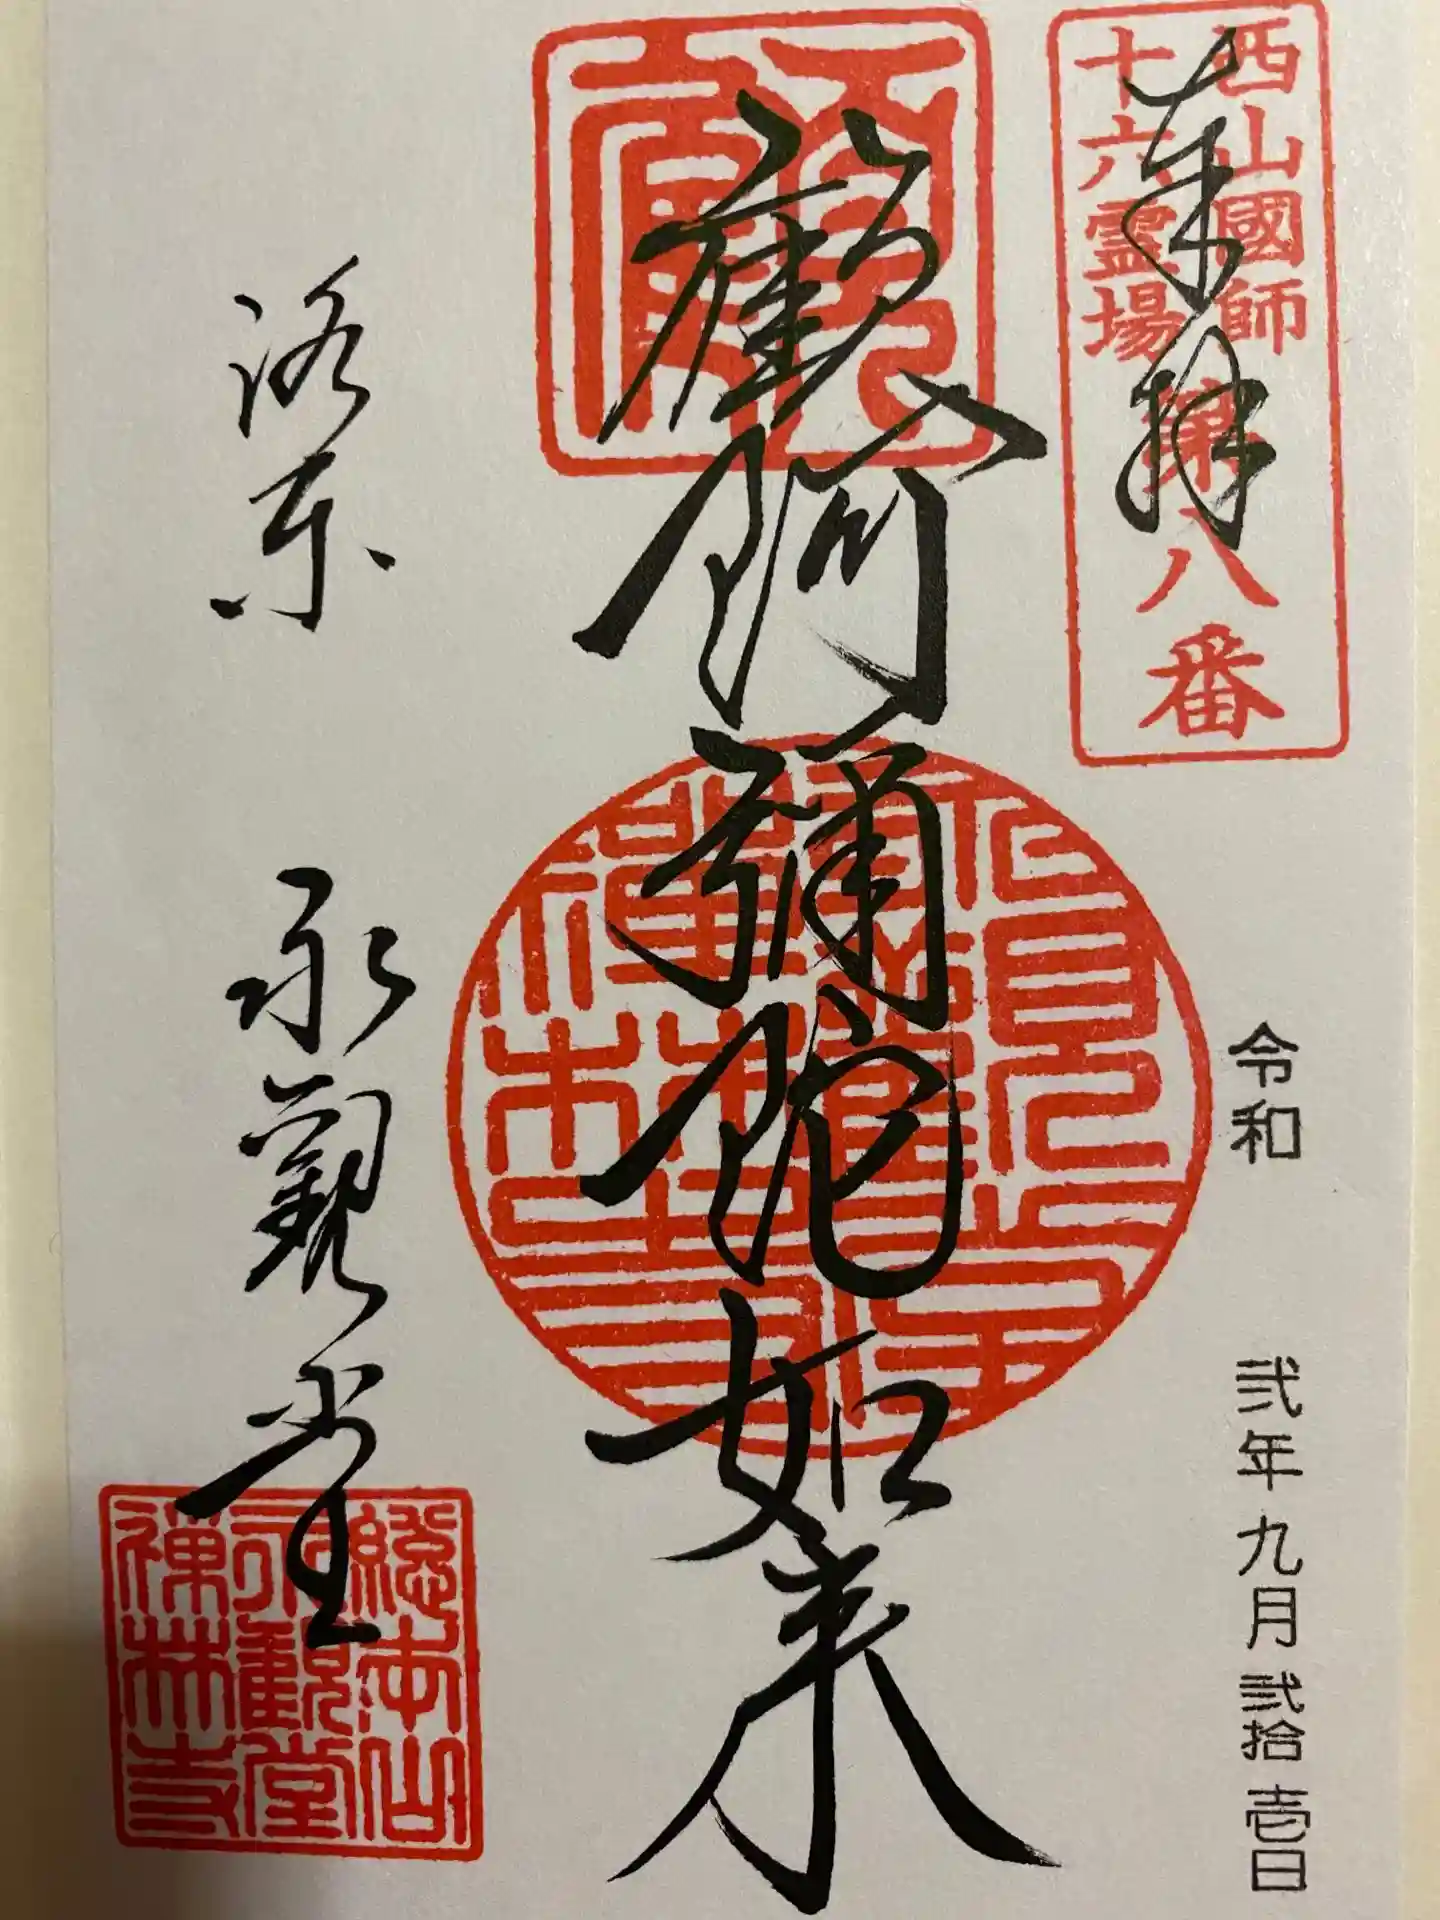 西山國師
十六霊場
第八番
奉拝
令和 弐年九月弐拾壱日
顧阿彌陀如来
洛東 永觀堂
總本山
永觀堂
禪林寺